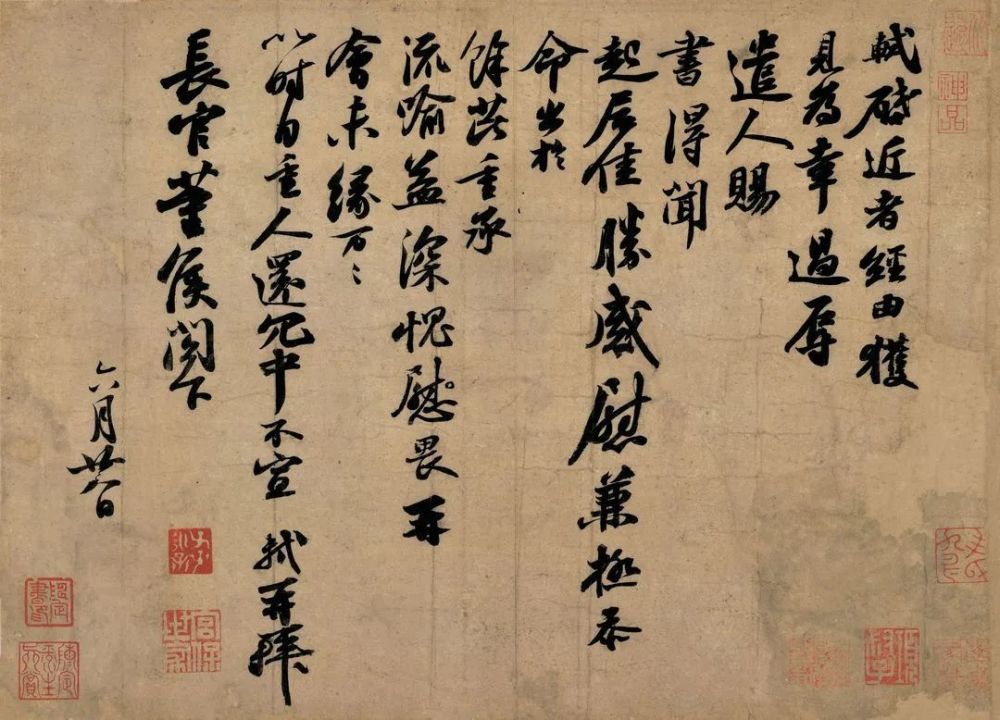 軾啟近者經由獲
見為幸過辱
遣人賜
書得聞
起居佳勝感慰兼極忝
命出於
餘芘重承
流喻益深愧慰畏再
會未緣万〻
以時自重人還冗中不宣 軾再拜
長官董侯閤下
六月廿八日
神品